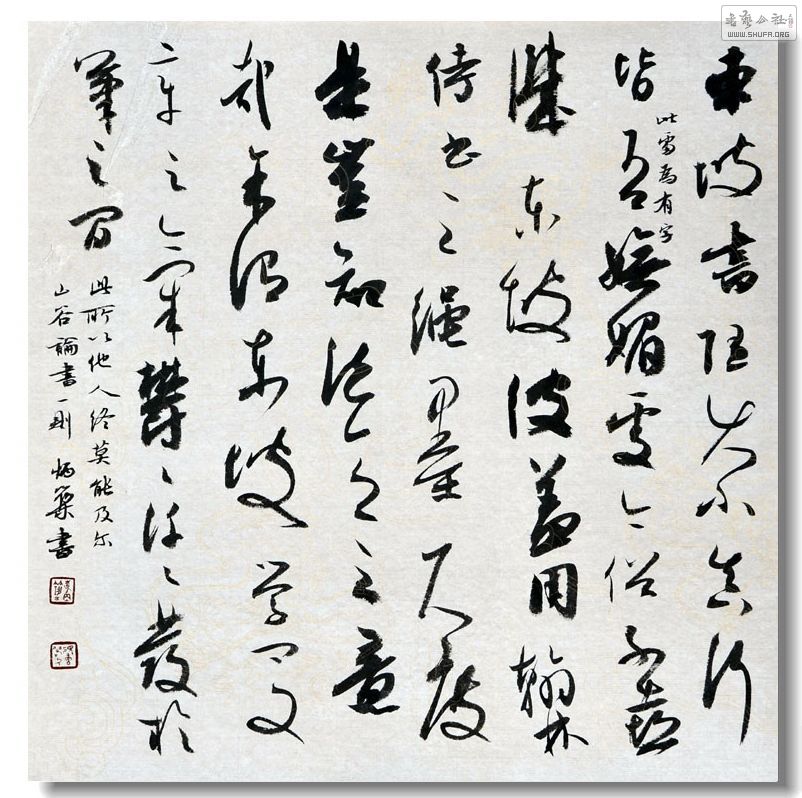 東坡書隨大小真行
皆嫵媚處今俗子喜
此當為有字
譏東坡彼蓋用翰林
侍書之繩墨尺度
是豈知法之意
哉余謂東坡學問文
章之氣鬱〻芊〻發於
筆之間
此所以他人終莫能及尔
山谷論書一則 書
書藝公社
WWW.SHUFA.ORG